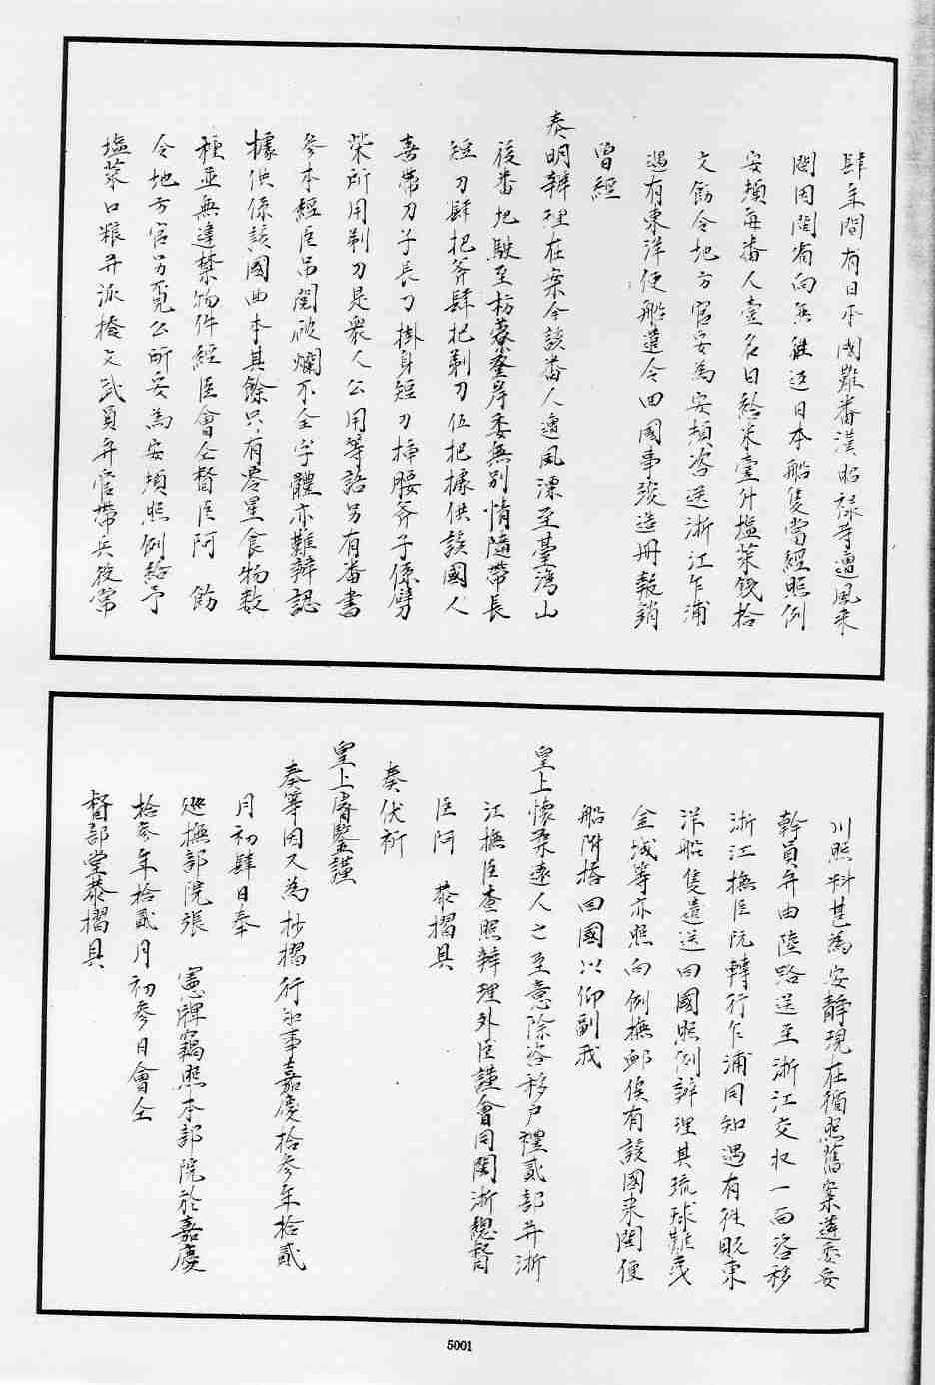 肆年間有日本國難番漢昭祿等遭風來
閩因閩省向無往返日本船隻當經照例
安頓每番人壹名日給米壹升塩菜錢拾
文飭令地方官妥為安頓咨送浙江乍浦
遇有東洋便船遣令回國事竣造冊報銷
曾經
奏明辦理在案今該番人遭風漂至臺灣山
後番地駛至枋藔登岸委無別情隨帶長
短刀肆把斧肆把剃刀伍把據供該國人
喜帶刀子長刀掛身短刀挿腰斧子係劈
柴所用剃刀是衆人公用等語另有番書
參本經臣吊閱破爛不全字體亦難辨認
據供係該國曲本其餘只有零星食物数
種並無違禁物件經臣會仝督臣阿　飭
令地方官另覓公所安為安頓照例給予
塩菜口粮并派撥文武員弁管帶兵役常
川照料甚為安靜現在循照舊案遴委妥
幹員弁由陸路送至浙江交收一面咨移
浙江撫臣阮轉行乍浦同知遇有往販東
洋船隻遣送回國照例辦理其琉球難夷
金城等亦照向例撫卹俟有該國来閩便
船附搭回國以仰副我
皇上懷柔遠人之至意除咨移户禮貳部并浙
江撫臣查照辦理外臣謹會同閩浙總督
臣阿　恭摺具
奏伏祈
皇上睿鑒謹
奏等因又為抄摺行知事嘉慶拾參年拾貳
月初肆日奉
廵撫部院張　憲牌竊照本部院於嘉慶
拾參年拾貳月初參日會仝
督部堂恭摺具
5001